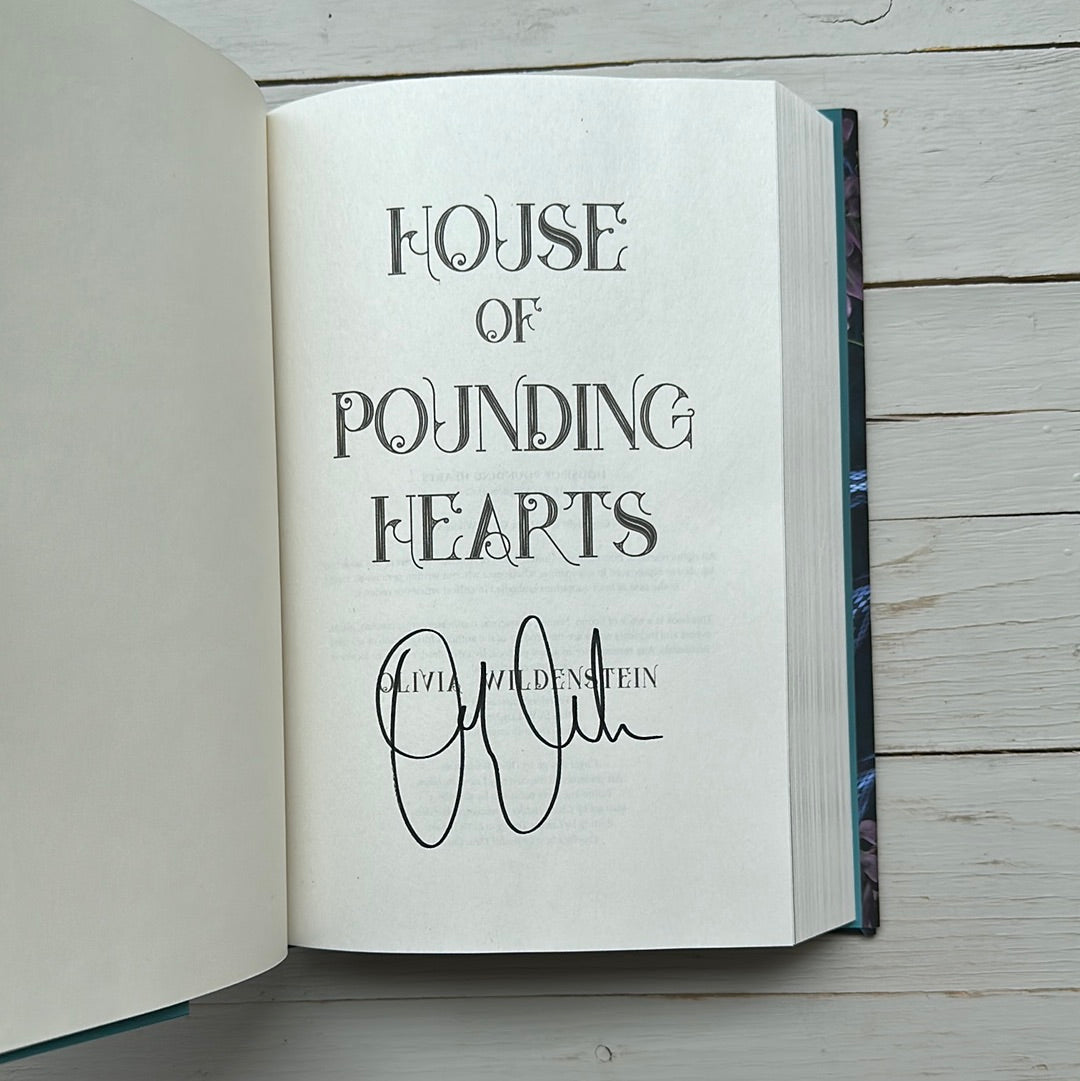 HOUSE
OF
POUNDING
HEARTS
OLIVIA WILDENSTEIN